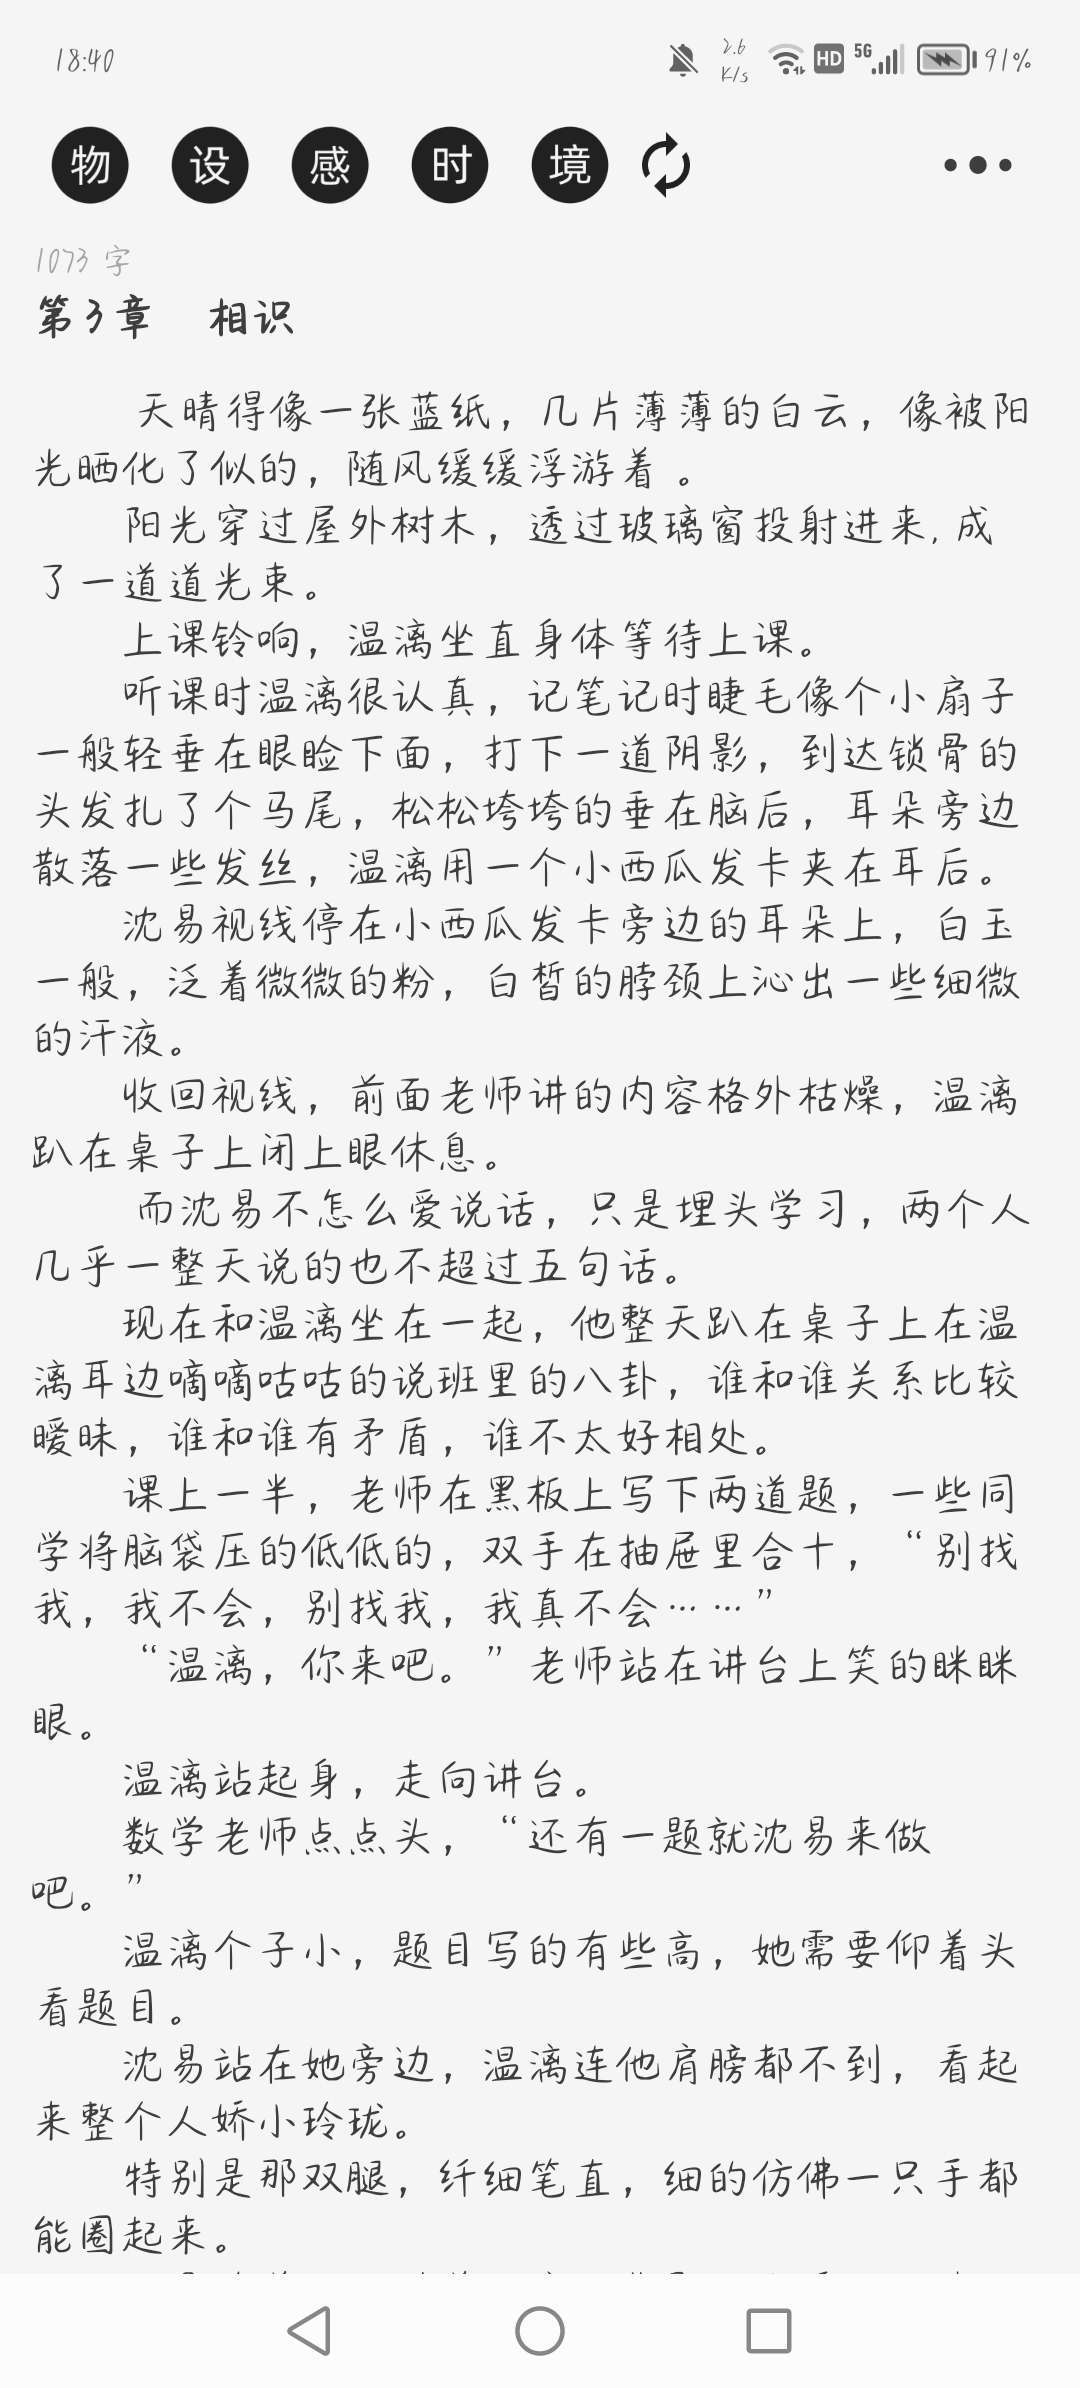 18:40 2.6 K/s HD 5G 91%
物 设 感 时 境
1073 字
第3章 相识
天晴得像一张蓝纸，几片薄薄的白云，像被阳
光晒化了似的，随风缓缓浮游着 。
阳光穿过屋外树木，透过玻璃窗投射进来, 成
了一道道光束。
上课铃响，温漓坐直身体等待上课。
听课时温漓很认真，记笔记时睫毛像个小扇子
一般轻垂在眼睑下面，打下一道阴影，到达锁骨的
头发扎了个马尾，松松垮垮的垂在脑后，耳朵旁边
散落一些发丝，温漓用一个小西瓜发卡夹在耳后。
沈易视线停在小西瓜发卡旁边的耳朵上，白玉
一般，泛着微微的粉，白皙的脖颈上沁出一些细微
的汗液。
收回视线，前面老师讲的内容格外枯燥，温漓
趴在桌子上闭上眼休息。
而沈易不怎么爱说话，只是埋头学习，两个人
几乎一整天说的也不超过五句话。
现在和温漓坐在一起，他整天趴在桌子上在温
漓耳边嘀嘀咕咕的说班里的八卦，谁和谁关系比较
暧昧，谁和谁有矛盾，谁不太好相处。
课上一半，老师在黑板上写下两道题，一些同
学将脑袋压的低低的，双手在抽屉里合十，“别找
我，我不会，别找我，我真不会……”
“温漓，你来吧。”老师站在讲台上笑的眯眯
眼。
温漓站起身，走向讲台。
数学老师点点头，“还有一题就沈易来做
吧。”
温漓个子小，题目写的有些高，她需要仰着头
看题目。
沈易站在她旁边，温漓连他肩膀都不到，看起
来整个人娇小玲珑。
特别是那双腿，纤细笔直，细的仿佛一只手都
能圈起来。